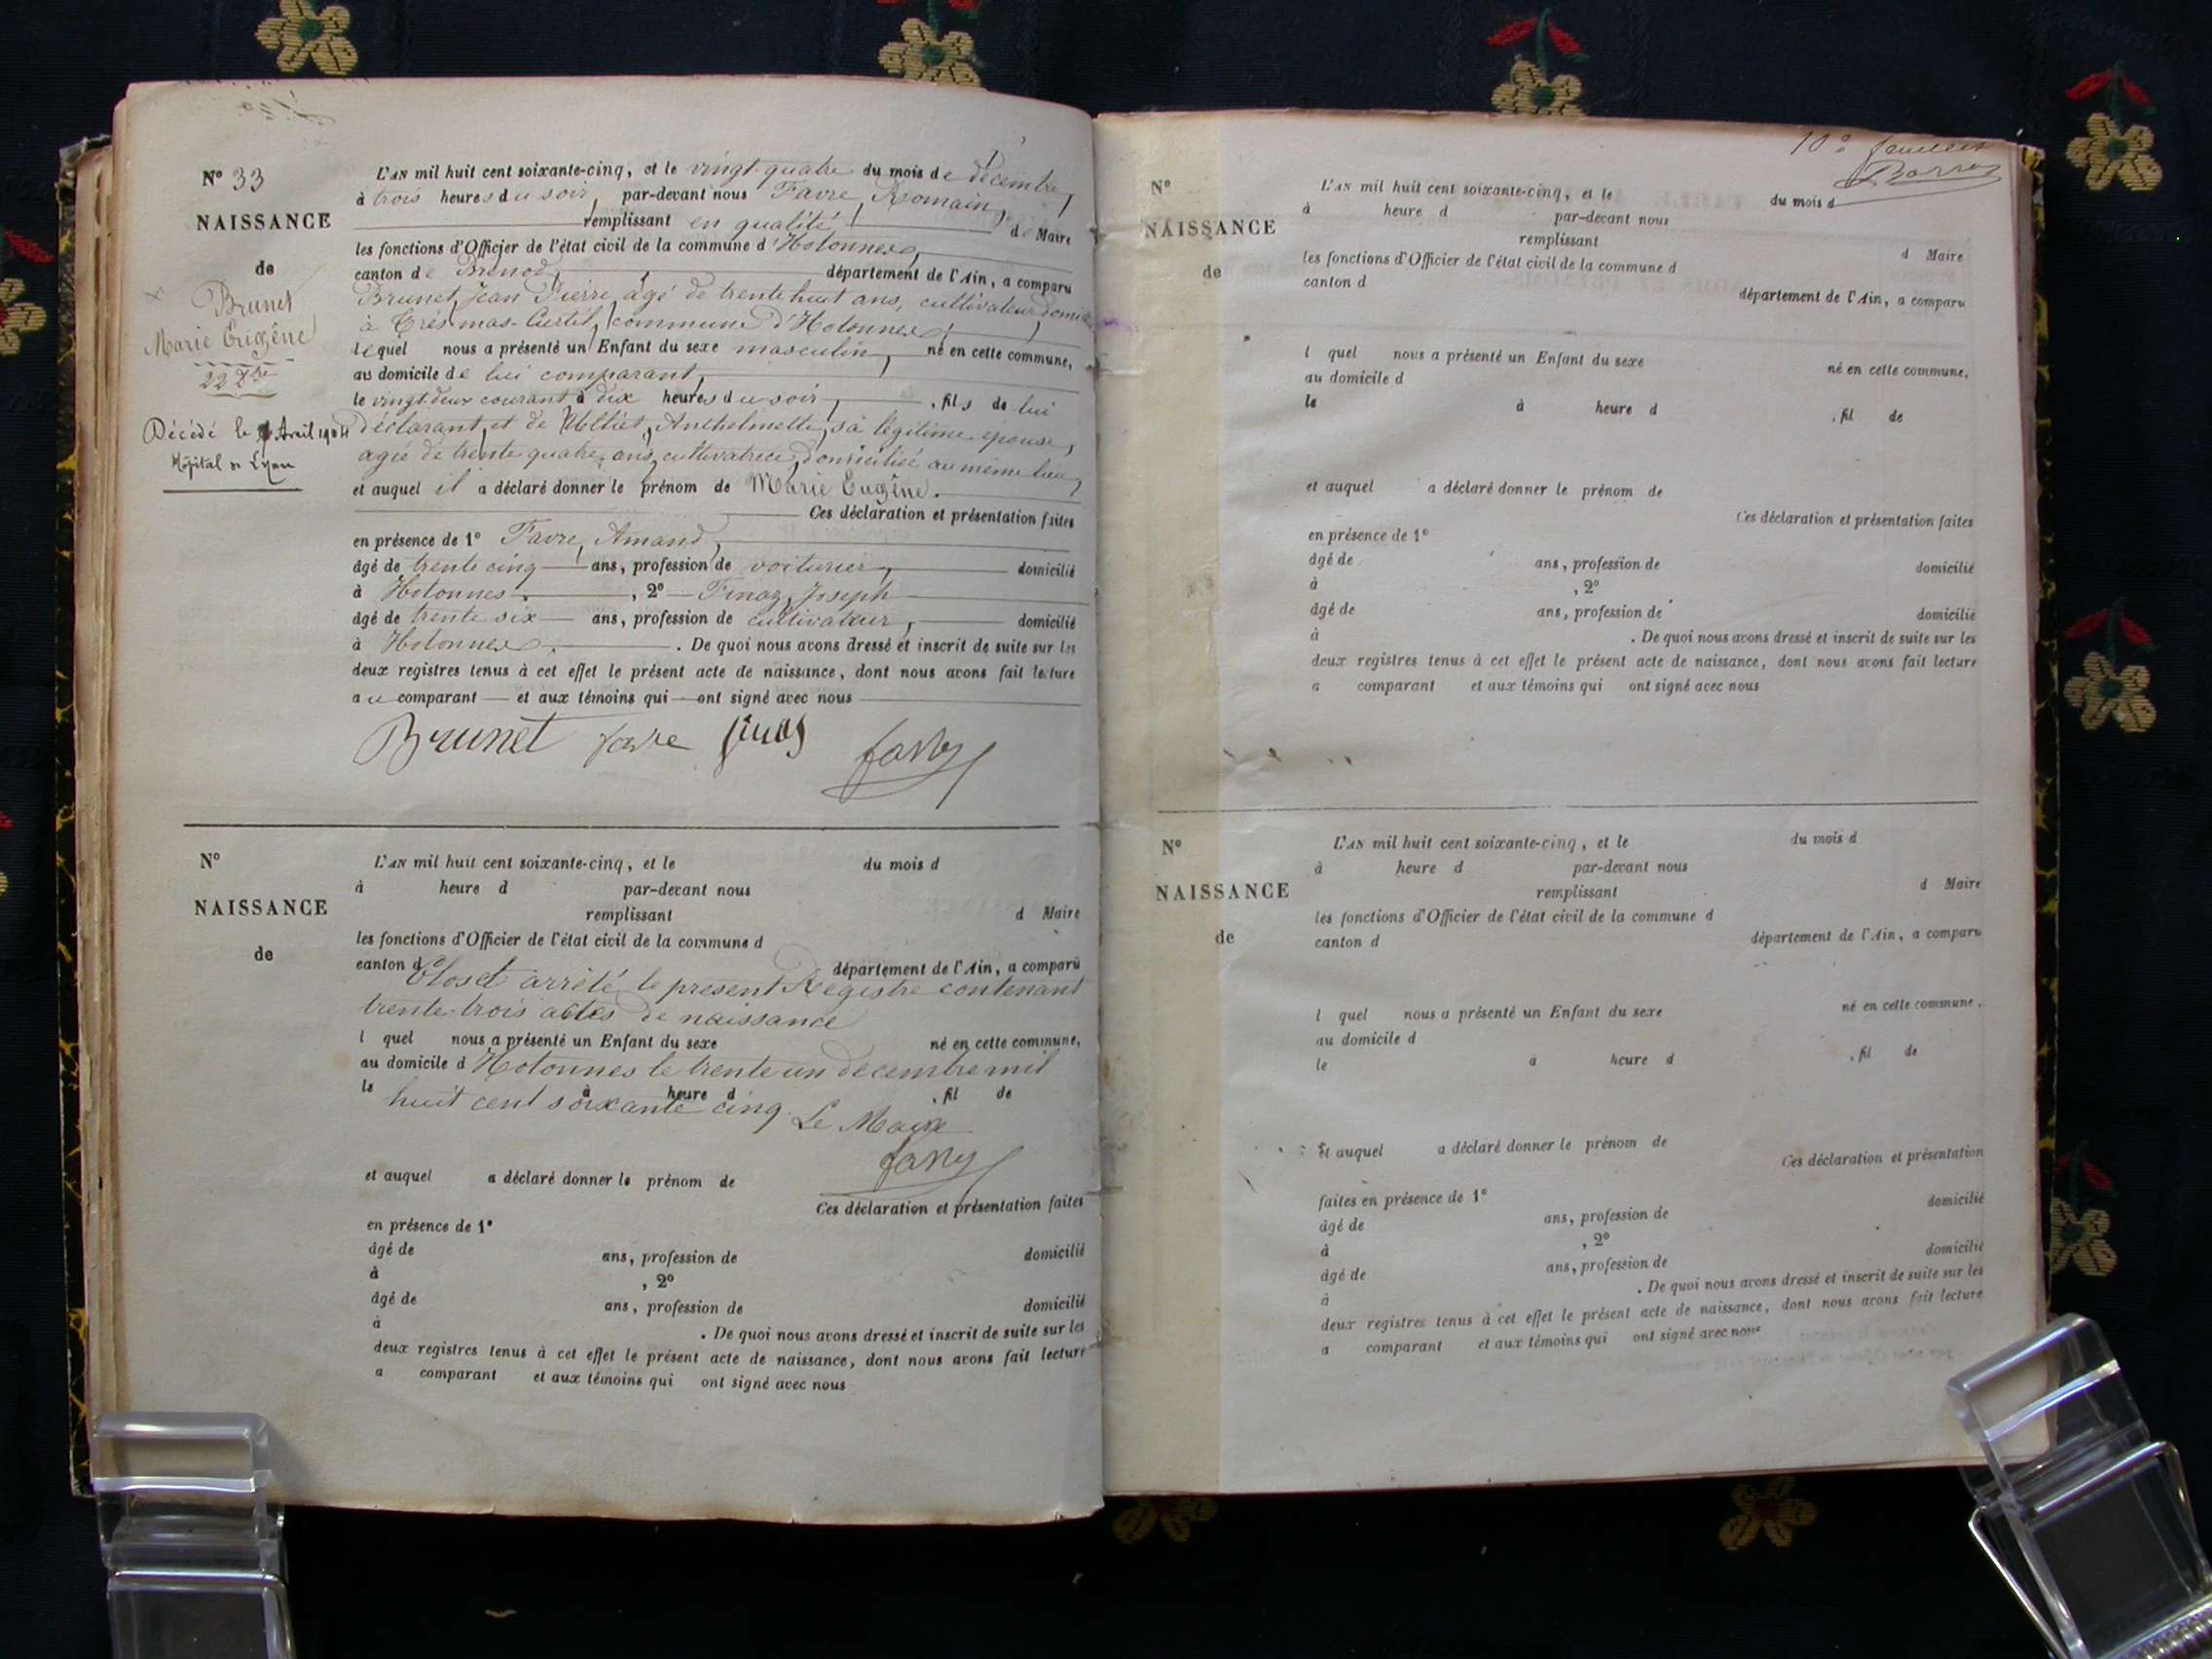 N° 33
NAISSANCE
de
Brunet
Marie Eugêne
22 Xbre
Décédé le Avril 1904
Hôpital de Lyon
L'AN mil huit cent soixante-cinq, et le vingt-quatre du mois de décembre,
à trois heures du soir, par-devant nous Favre, Romain,
remplissant en qualité de Maire
les fonctions d'Officier de l'état civil de la commune d'Hotonnes,
canton de Brénod, département de l'Ain, a comparu
Brunet, Jean Pierre, âgé de trente huit ans, cultivateur, domicilié
à commune d'Hotonnes,
lequel nous a présenté un Enfant du sexe masculin, né en cette commune,
au domicile de lui comparant,
le vingt-deux courant à dix heures du soir, , fils de lui
déclarant, et de Anthelmette, sa légitime épouse,
agée de trente quatre ans, cultivatrice, domiciliée au même lieu,
et auquel il a déclaré donner le prénom de Marie Eugêne.
Ces déclaration et présentation faites
en présence de 1° Favre, Amand,
âgé de trente cinq ans, profession de voiturier, domicilié
à Hotonnes , 2° Finaz, Joseph
âgé de trente six ans, profession de cultivateur, domicilié
à Hotonnes . De quoi nous avons dressé et inscrit de suite sur les
deux registres tenus à cet effet le présent acte de naissance, dont nous avons fait lecture
au comparant et aux témoins qui ont signé avec nous
Brunet favre finaz favre
N°
NAISSANCE
de
L'AN mil huit cent soixante-cinq, et le du mois d
à heure d par-devant nous
remplissant d Maire
les fonctions d'Officier de l'état civil de la commune d
canton d département de l'Ain, a comparu
Clos et arrêté le present Registre contenant
trente-trois actes de naissance
l quel nous a présenté un Enfant du sexe né en cette commune,
au domicile d
Hotonnes le trente un decembre mil
le à heure d , fil de
huit cent soixante cinq. Le Maire
favre
et auquel a déclaré donner le prénom de
Ces déclaration et présentation faites
en présence de 1°
âgé de ans, profession de domicilié
à , 2°
âgé de ans, profession de domicilié
à . De quoi nous avons dressé et inscrit de suite sur les
deux registres tenus à cet effet le présent acte de naissance, dont nous avons fait lecture
a comparant et aux témoins qui ont signé avec nous
10e feuillet
N°
NAISSANCE
de
L'AN mil huit cent soixante-cinq, et le du mois d
à heure d par-devant nous
remplissant d Maire
les fonctions d'Officier de l'état civil de la commune d
canton d département de l'Ain, a comparu
l quel nous a présenté un Enfant du sexe né en cette commune,
au domicile d
le à heure d , fil de
et auquel a déclaré donner le prénom de
Ces déclaration et présentation faites
en présence de 1°
âgé de ans, profession de domicilié
à , 2°
âgé de ans, profession de domicilié
à . De quoi nous avons dressé et inscrit de suite sur les
deux registres tenus à cet effet le présent acte de naissance, dont nous avons fait lecture
a comparant et aux témoins qui ont signé avec nous
N°
NAISSANCE
de
L'AN mil huit cent soixante-cinq, et le du mois d
à heure d par-devant nous
remplissant d Maire
les fonctions d'Officier de l'état civil de la commune d
canton d département de l'Ain, a comparu
l quel nous a présenté un Enfant du sexe né en cette commune.
au domicile d
le a heure d , fil de
et auquel a déclaré donner le prénom de
Ces déclaration et présentation
faites en présence de 1°
âgé de ans, profession de domicilié
à , 2°
âgé de ans, profession de domicilié
à . De quoi nous avons dressé et inscrit de suite sur les
deux registres tenus à cet effet le présent acte de naissance, dont nous avons fait lecture
a comparant et aux témoins qui ont signé avec nous